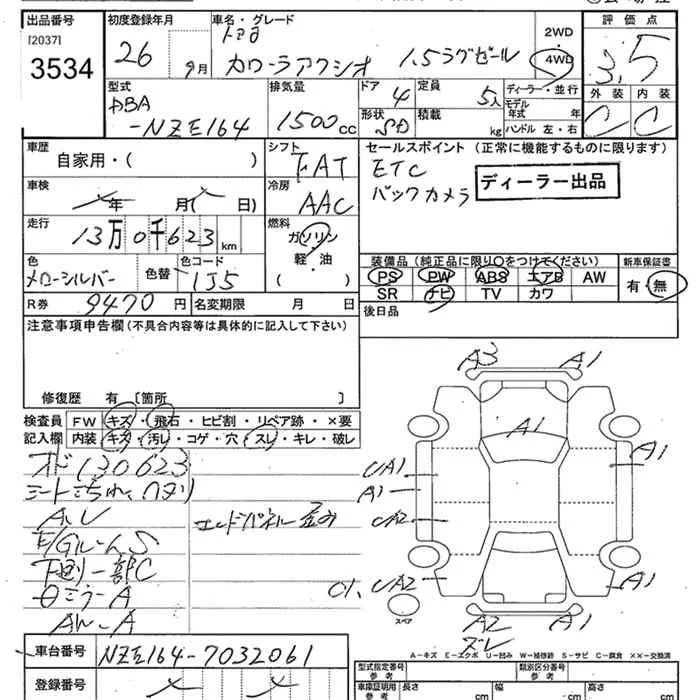 出品番号 初度登録年月 車名・グレード 評価点
[2037] トヨタ 2WD
3534 26 9月 カローラアクシオ 1.5ラグゼール 4WD 3.5
型式 排気量 ドア 定員 ディーラー・並行 外装 内装
DBA 4 5人 モデル年式 年 C C
-NZE164 1500cc 形状 SD 積載 kg ハンドル 左・右
車歴 シフト セールスポイント (正常に機能するものに限ります)
自家用・( ) FAT ETC
車検 冷房 バックカメラ ディーラー出品
年 月( 日) AAC
走行 燃料
13万0千623km ガソリン
軽・油
( )
色 色替 色コード 装備品(純正品に限り○をつけてください) 新車保証書
メローシルバー 1J5 PS PW ABS エアB AW 有・無
SR ナビ TV カワ
R券 9470円 名変期限 月 日 後日品
注意事項申告欄(不具合内容等は具体的に記入して下さい)
修復歴 有〔箇所 〕
検査員 FW キズ・飛石・ヒビ割・リペア跡・×要
記入欄 内装 キズ・汚レ・コゲ・穴・スレ・キレ・破レ
オド130623
シートよごれ、
A,U エンドパネル歪み
E/GルームS
下廻リ一部C
ミラーA
AW-A
A3 A1
A1
A1
UA1
A1
UA2
UA2
A1
スペア
A2 A1
ズレ
A-キズ E-エクボ U-凹み W-補修跡 S-サビ C-腐食 XX-交換済
車台番号 NZE164-7032061
登録番号
型式指定番号 類別区分番号
参考 参考
車庫証明用 長さ 幅 高さ
参考 cm cm cm